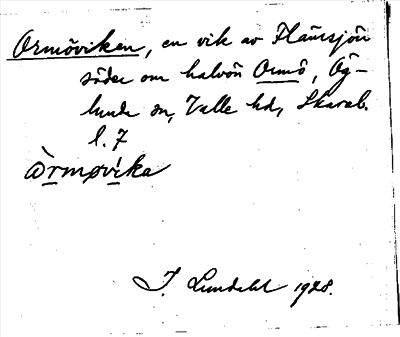 Ormöviken, en vik av Flämsjön
söder om halvön Ormö, Ög-
lunda sn, Valle hd, Skarab.
l. 7
òrmøvika
J. Lundahl 1928.